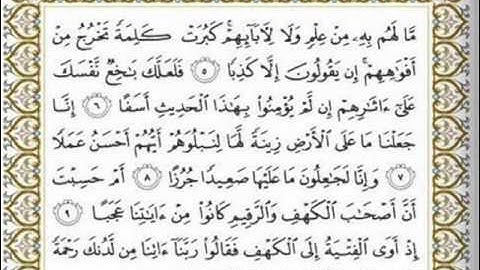 مَّا لَهُم بِهِۦ مِنْ عِلْمٍ وَلَا لِأٓبَآئِهِمْ ۚ كَبُرَتْ كَلِمَةً تَخْرُجُ مِنْ
أَفْوَٰهِهِمْ ۚ إِن يَقُولُونَ إِلَّا كَذِبًا ٥ فَلَعَلَّكَ بَٰخِعٌ نَّفْسَكَ
عَلَىٰٓ ءَاثَٰرِهِمْ إِن لَّمْ يُؤْمِنُوا۟ بِهَٰذَا ٱلْحَدِيثِ أَسَفًا ٦ إِنَّا
جَعَلْنَا مَا عَلَى ٱلْأَرْضِ زِينَةً لَّهَا لِنَبْلُوَهُمْ أَيُّهُمْ أَحْسَنُ عَمَلًا
٧ وَإِنَّا لَجَٰعِلُونَ مَا عَلَيْهَا صَعِيدًا جُرُزًا ٨ أَمْ حَسِبْتَ
أَنَّ أَصْحَٰبَ ٱلْكَهْفِ وَٱلرَّقِيمِ كَانُوا۟ مِنْ ءَايَٰتِنَا عَجَبًا ٩
إِذْ أَوَى ٱلْفِتْيَةُ إِلَى ٱلْكَهْفِ فَقَالُوا۟ رَبَّنَآ ءَاتِنَا مِن لَّدُنكَ رَحْمَةً